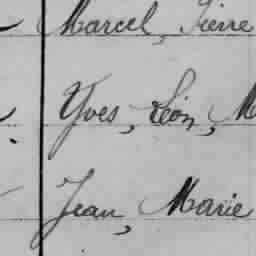 Marcel, Pierre
Yves, Léon, M
Jean, Marie